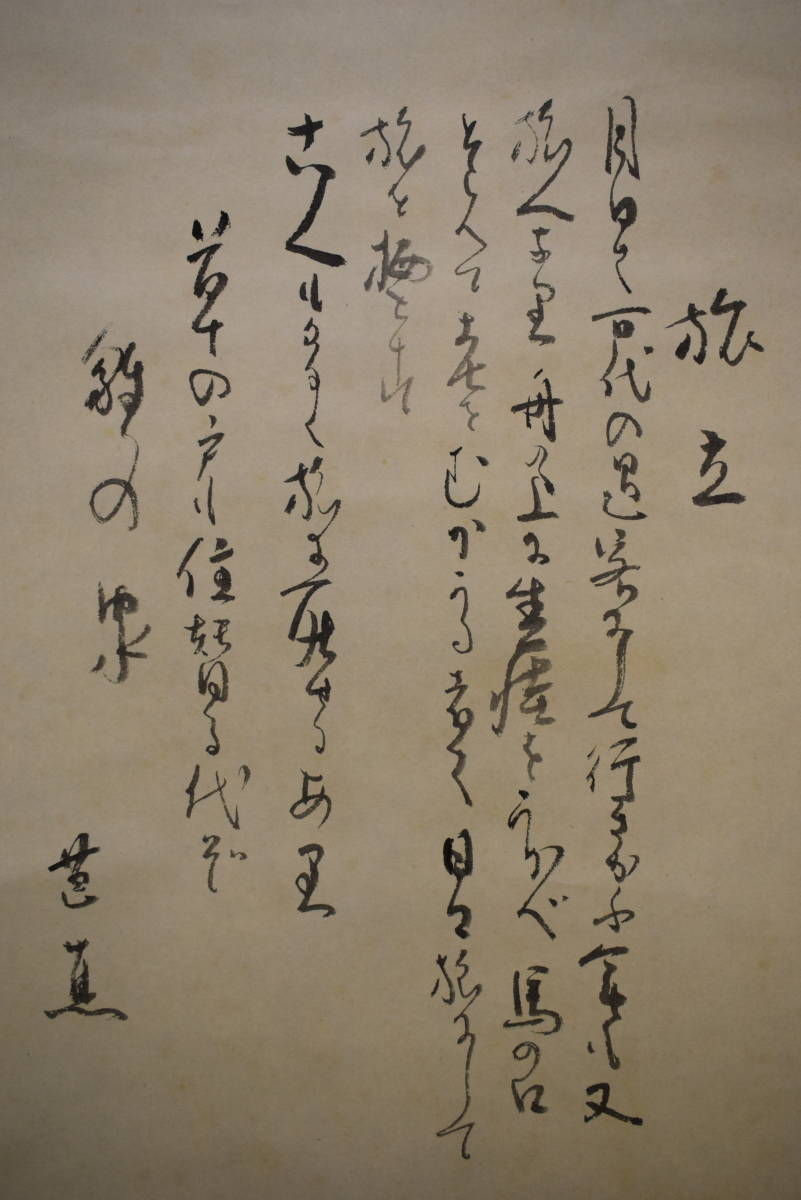 旅立
月日は百代の過客にして行きかふ年も又
旅人なり舟の上に生涯をうかべ馬の口
とらへて老をむかふる者は日々旅にして
旅を栖とす
古人も多く旅に死せるあり
草の戸も住替る代ぞ
雛の家
芭蕉